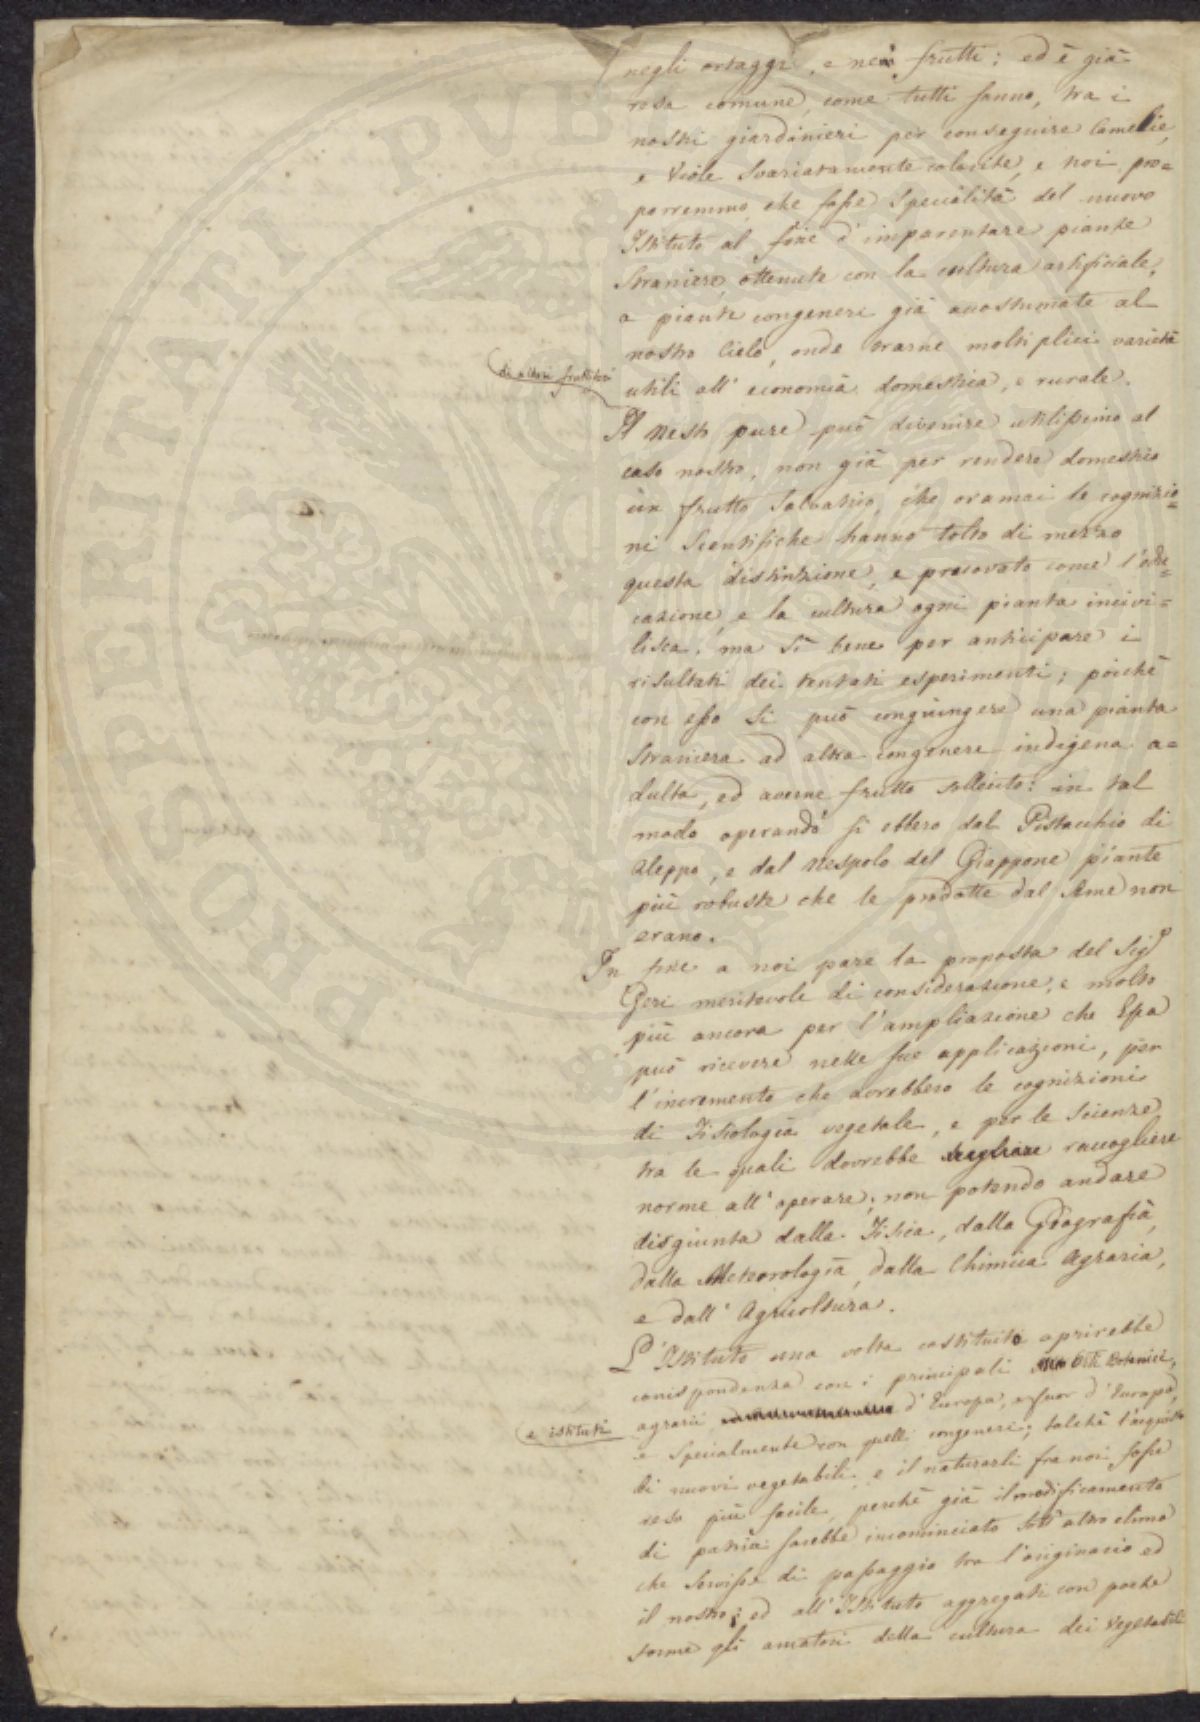 negli ortaggi, e nei frutti; ed è già
resa comune, come tutti sanno, tra i
nostri giardinieri per conseguire Camelie,
e Viole svariatamente colorite, e noi pro=
porremmo, che fosse specialità del nuovo
Istituto al fine d'imparentare piante
straniere, ottenute con la cultura artificiale,
a piante congeneri già accostumate al
nostro Cielo, onde trarne moltiplici varietà
di alberi fruttiferi
utili all'economia domestica, e rurale.
Il Nesto pure può divenire utilissimo al
caso nostro, non già per rendere domestico
un frutto salvatico, che oramai le cognizio=
ni scientifiche hanno tolto di mezzo
questa distinzione, e provato come l'edu=
cazione, e la cultura ogni pianta incivi=
lisca, ma sì bene per anticipare i
risultati dei tentati esperimenti; poichè
con esso si può congiungere una pianta
straniera ad altra congenere indigena a=
dulta, ed averne frutto sollecito: in tal
modo operando si ebbero dal Pistacchio di
Aleppo, e dal Nespolo del Giappone piante
più robuste che le prodotte dal seme non
erano.
In fine a noi pare la proposta del Sig.r
Geri meritevole di considerazione, e molto
più ancora per l'ampliazione che Essa
può ricevere nelle sue applicazioni, per
l'incremento che avrebbero le cognizioni
di Fisiologia vegetale, e per le Scienze
tra le quali dovrebbe raccogliere
norme all'operare; non potendo andare
disgiunta dalla Fisica, dalla Geografia,
dalla Meteorologia, dalla Chimica Agraria,
e dall'Agricoltura.
L'Istituto una volta costituito aprirebbe
corrispondenza con i principali Orti Botanici,
e istituti
agrarii d'Europa, e fuor d'Europa,
e specialmente con quelli congeneri; talchè l'acquisto
di nuovi vegetabili, e il naturarli fra noi fosse
reso più facile, perchè già il modificamento
di patria sarebbe incominciato sott'altro clima
che servisse di passaggio tra l'originario ed
il nostro; ed all'Istituto aggregati con poche
somme gli amatori della cultura dei Vegetabili